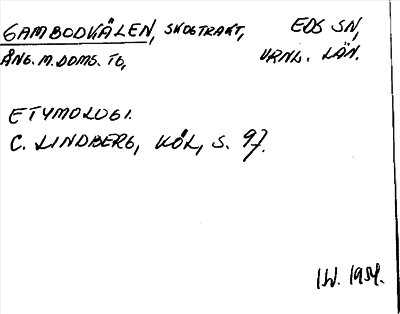 GAMBODKÄLEN, SKOGTRAKT, EDS SN,
ÅNG. M. DOMS. TG, VRNL. LÄN.
ETYMOLOGI.
C. LINDBERG, KÖL, S. 97.
IW. 1954.